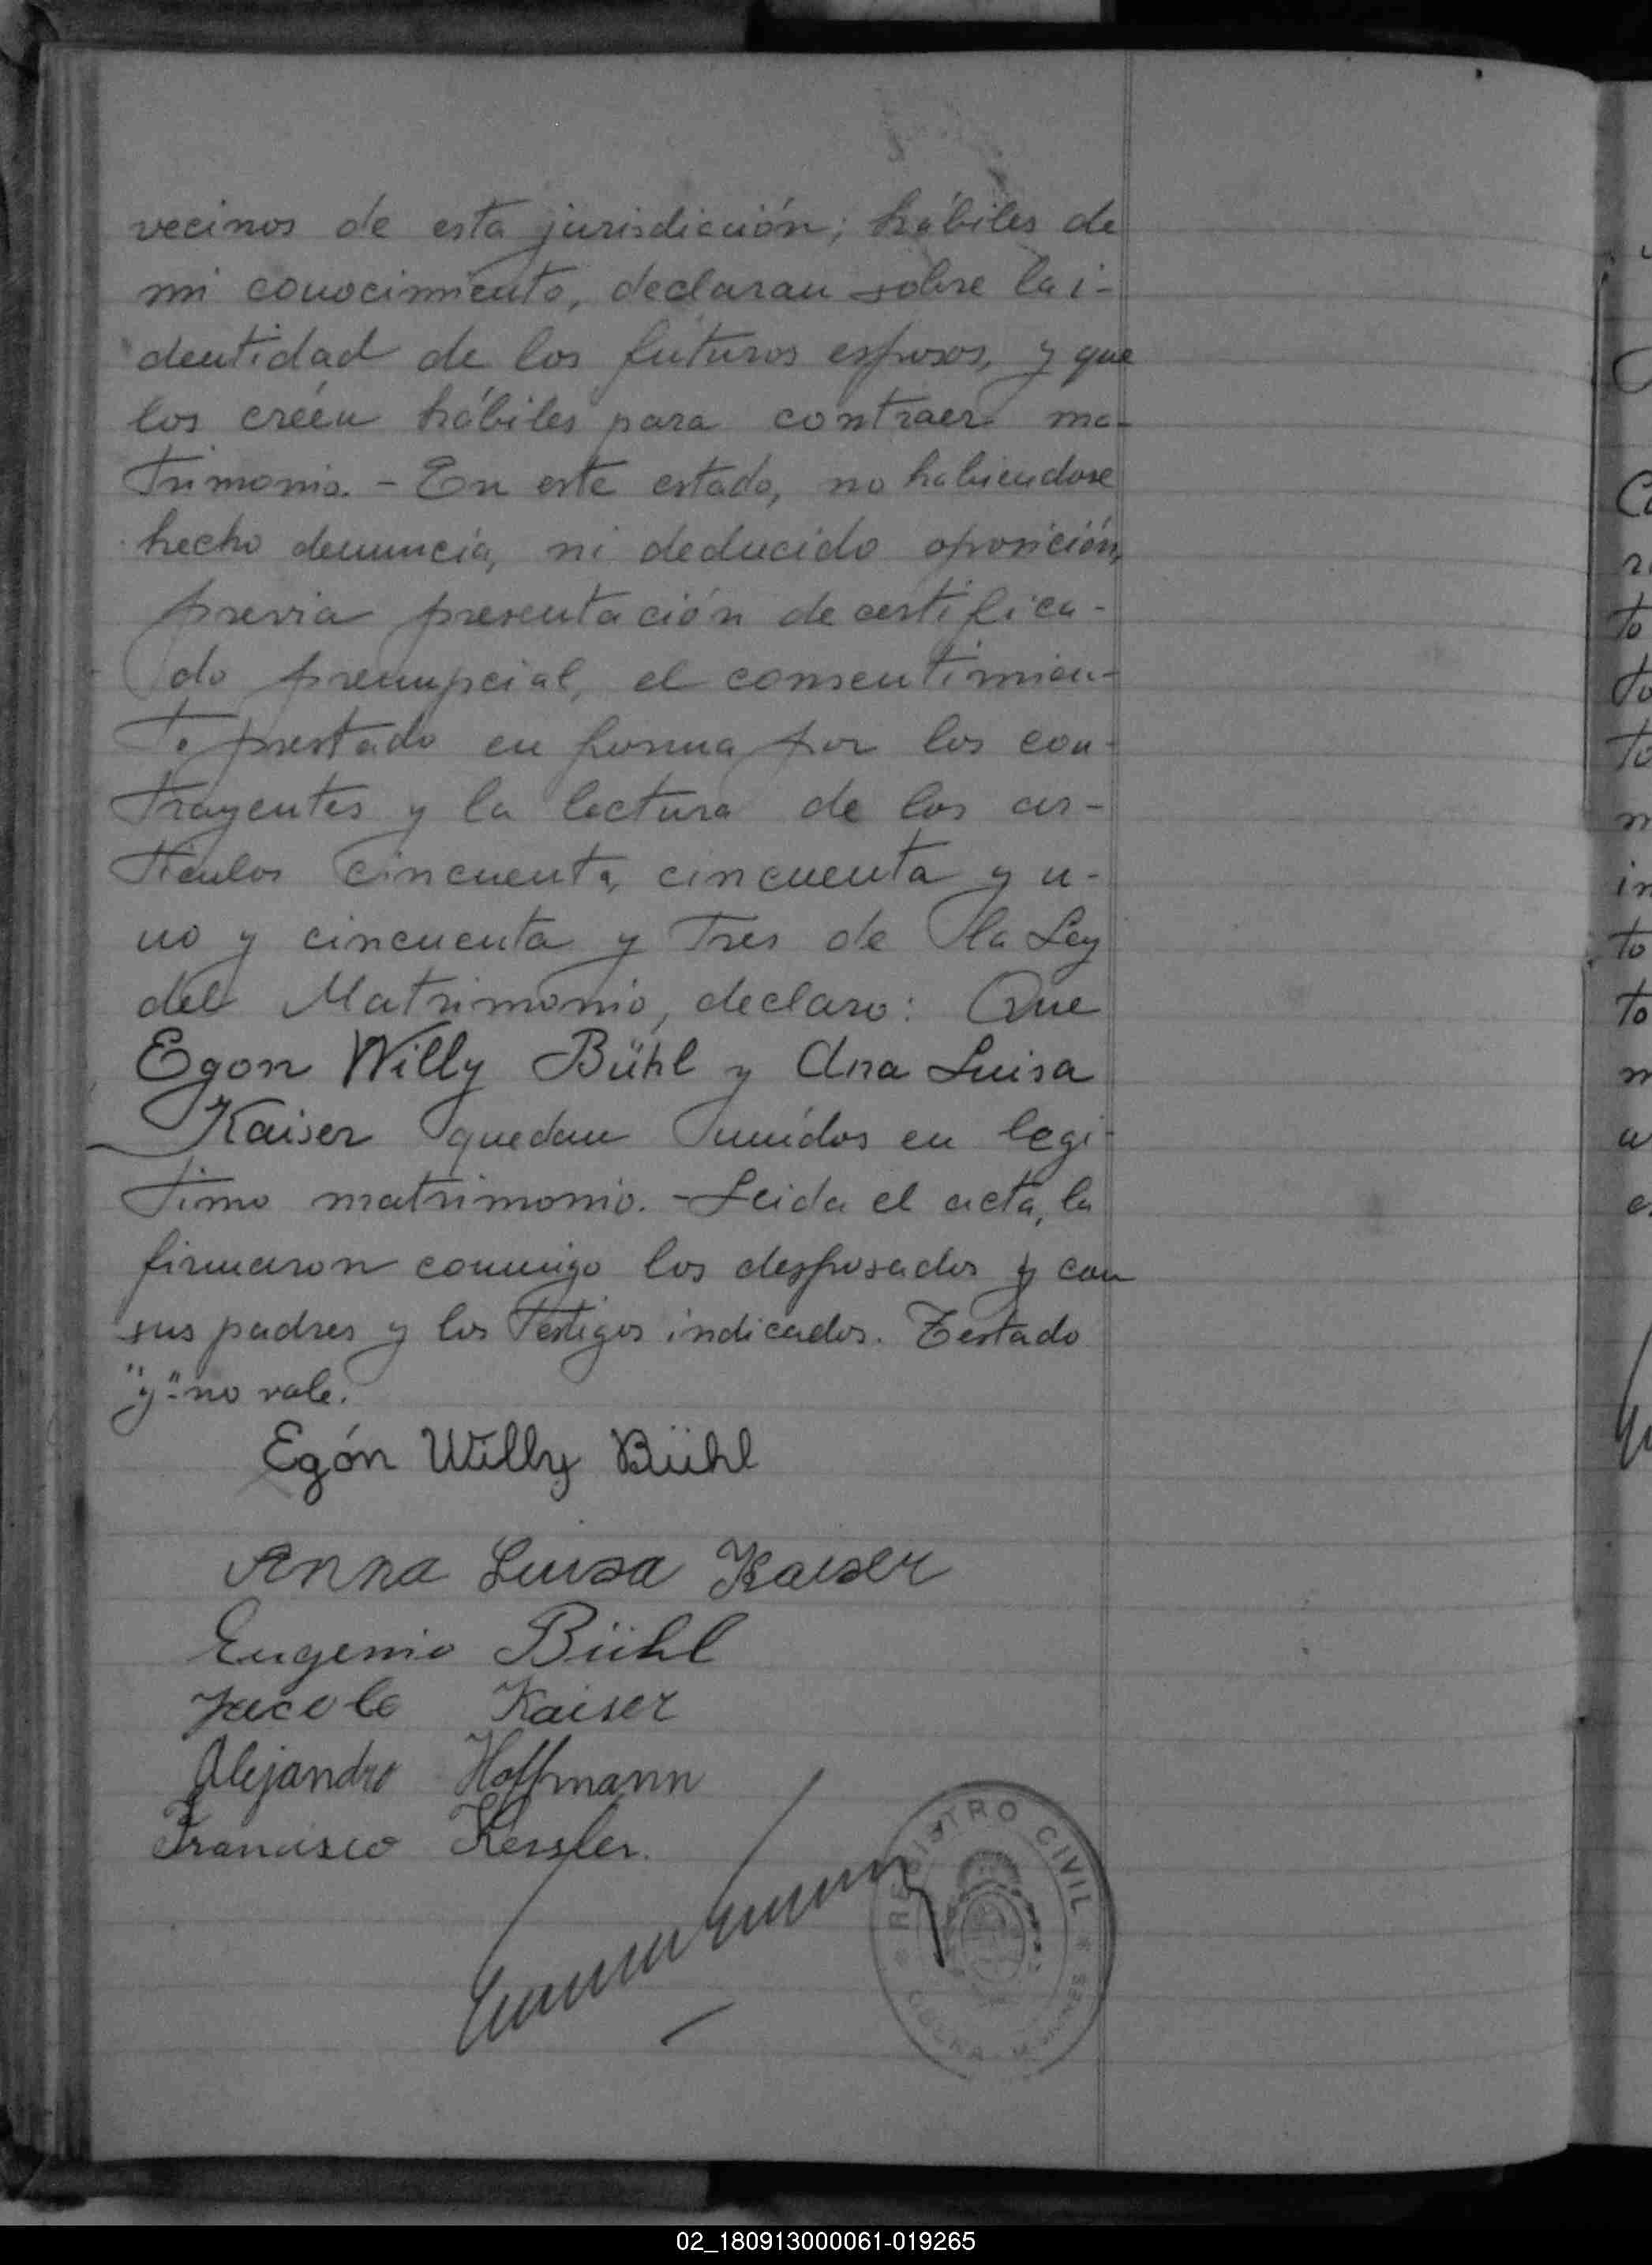 vecinos de esta jurisdicción; hábiles de
mi conocimiento, declaran sobre la i-
dentidad de los futuros esposos, y que
los creén hábiles para contraer ma-
trimonio. - En este estado, no habiendose
hecho denuncia, ni deducido oposición,
previa presentación de certifica-
do prenupcial, el consentimien-
to prestado en forma por los con-
trayentes y la lectura de los ar-
tículos cincuenta, cincuenta y u-
no y cincuenta y tres de la Ley
del Matrimonio, declaro: Que
Egon Willy Bühl y Ana Luisa
Kaiser quedan unidos en legi-
timo matrimonio. - Leida el acta, la
firmaron conmigo los desposados y con
sus padres y los testigos indicados. Testado
"y" no vale.
Egón Willy Bühl
Anna Luisa Kaiser
Eugenio Bühl
Jacob Kaiser
Alejandro Hoffmann
Francisco Kessler.
REGISTRO CIVIL
02_180913000061-019265